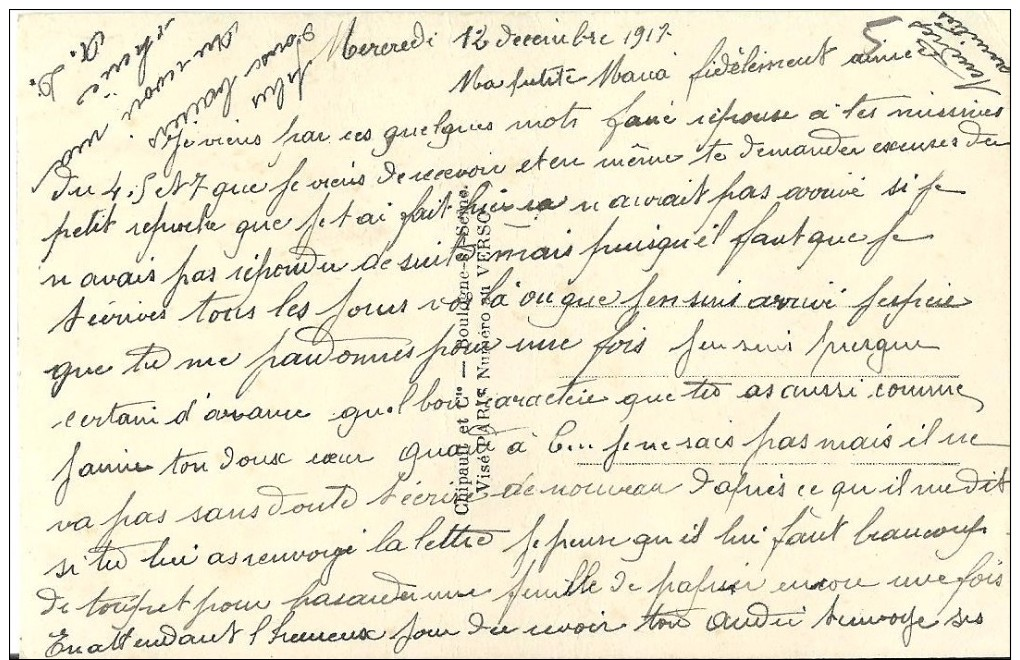 Mercredi 12 decembre 1917
Ma petite Maria fidèlement aimée
Je viens par ces quelques mots faire réponse à tes missives
du 4.5 et 7 que je viens de recevoir et en même te demander excuses du
petit reproche que je t'ai fait n'aurait pas arrivé si je
n'avais pas répondu de suite mais puisqu'il faut que je
t'écrives tous les jours là ou que j'en suis arrivé j'espère
que tu me pardonnes pour une fois j'en suis presque
certain d'avance quel bon caractère que tu as aussi comme
j'aime ton doux cœur quant à je ne sais pas mais il ne
va pas sans doute t'écrire de nouveau d'après ce qu'il me dit
si tu lui as renvoyé la lettre je pense qu'il lui faut beaucoup
de toupet pour hasarder une feuille de papier encore une fois
En attendant l'heureux jour du revoir ton André t'envoye ses
5 Tendres
amitiés
Jolis
doux baisers
Au revoir ma
chérie
A. D.
Chipault et Cie — Boulogne-s/-Seine.
Visé PARIS Numéro au VERSO